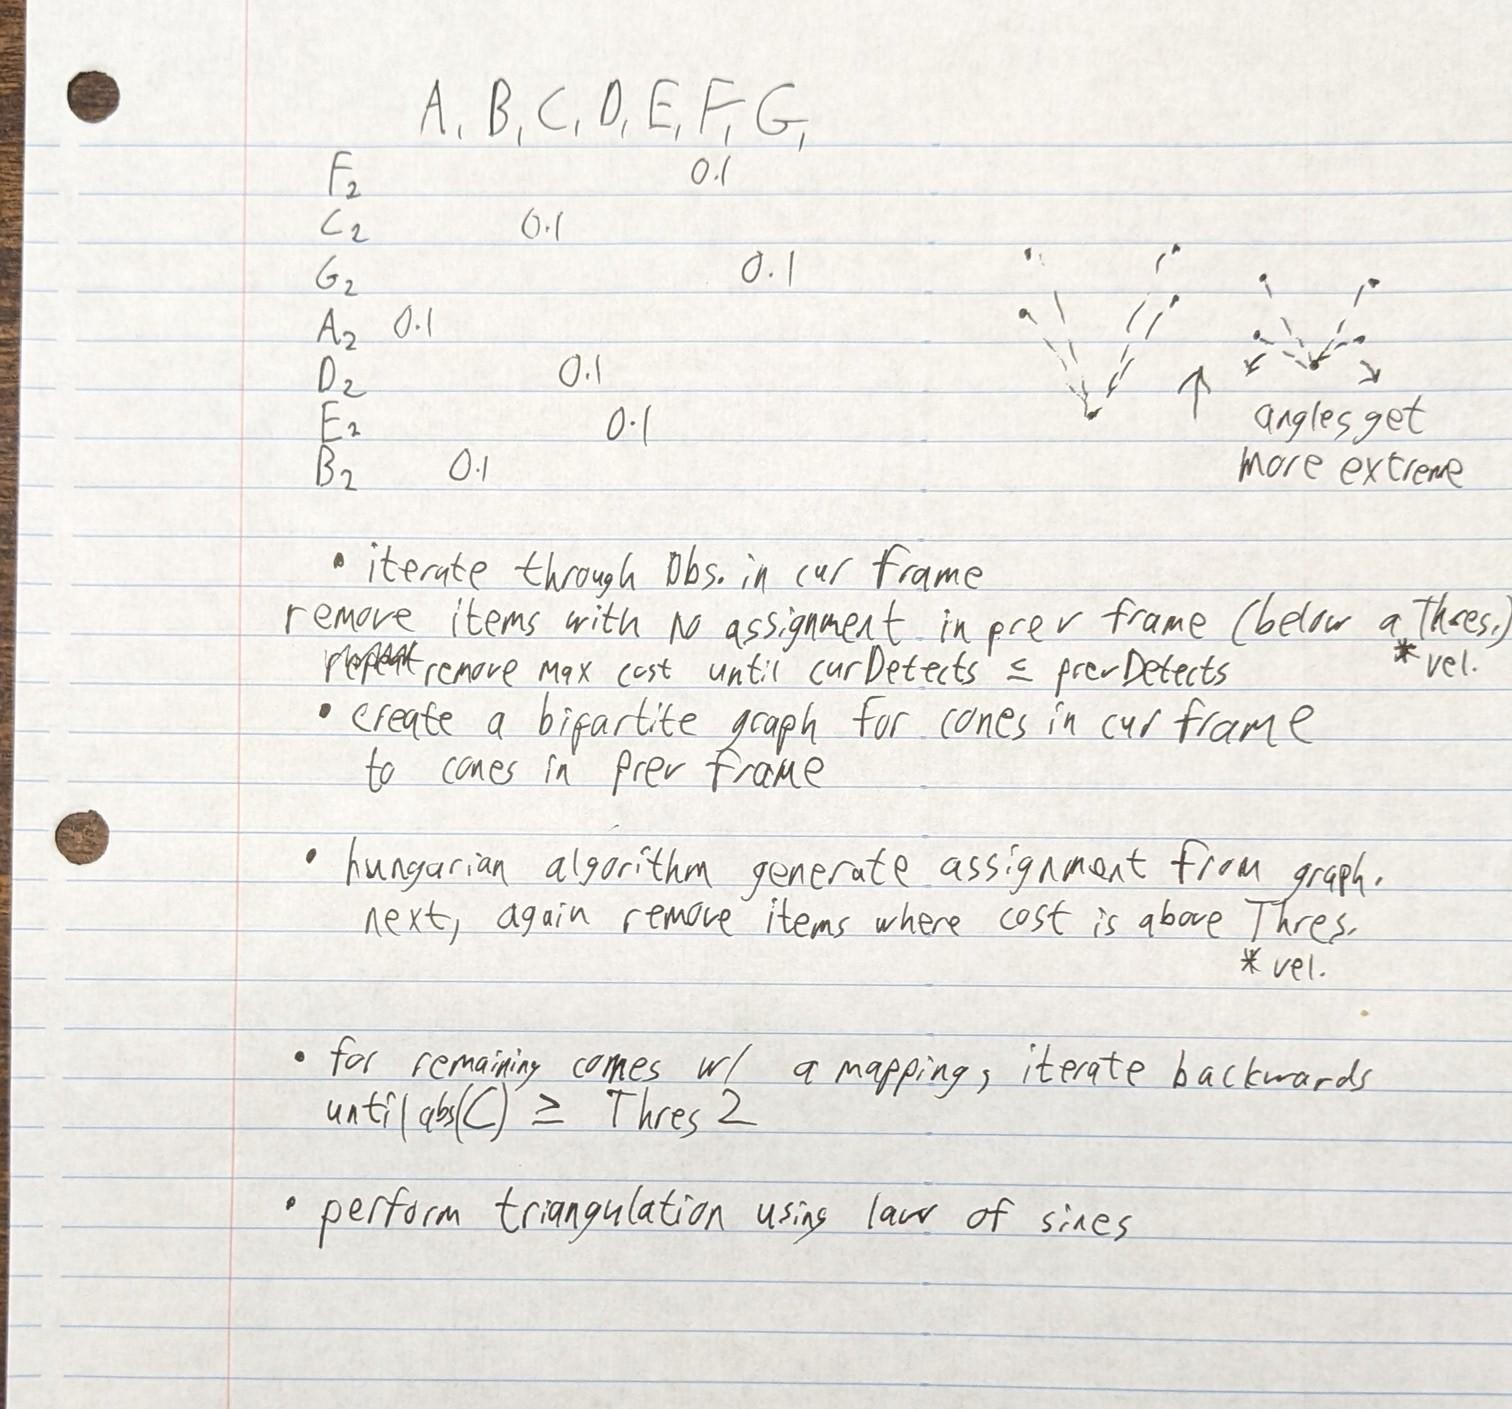 A₁ B₁ C₁ D₁ E₁ F₁ G₁
F₂ 0.1
C₂ 0.1
G₂ 0.1
A₂ 0.1
D₂ 0.1
E₂ 0.1
B₂ 0.1
angles get
more extreme
• iterate through Obs. in cur frame
remove items with no assignment in prev frame (below a Thres.)
* vel.
remove max cost until curDetects ≤ prevDetects
• create a bipartite graph for cones in cur frame
to cones in prev frame
• hungarian algorithm generate assignment from graph.
next, again remove items where cost is above Thres.
* vel.
• for remaining comes w/ a mapping, iterate backwards
until abs(C) ≥ Thres 2
• perform triangulation using law of sines